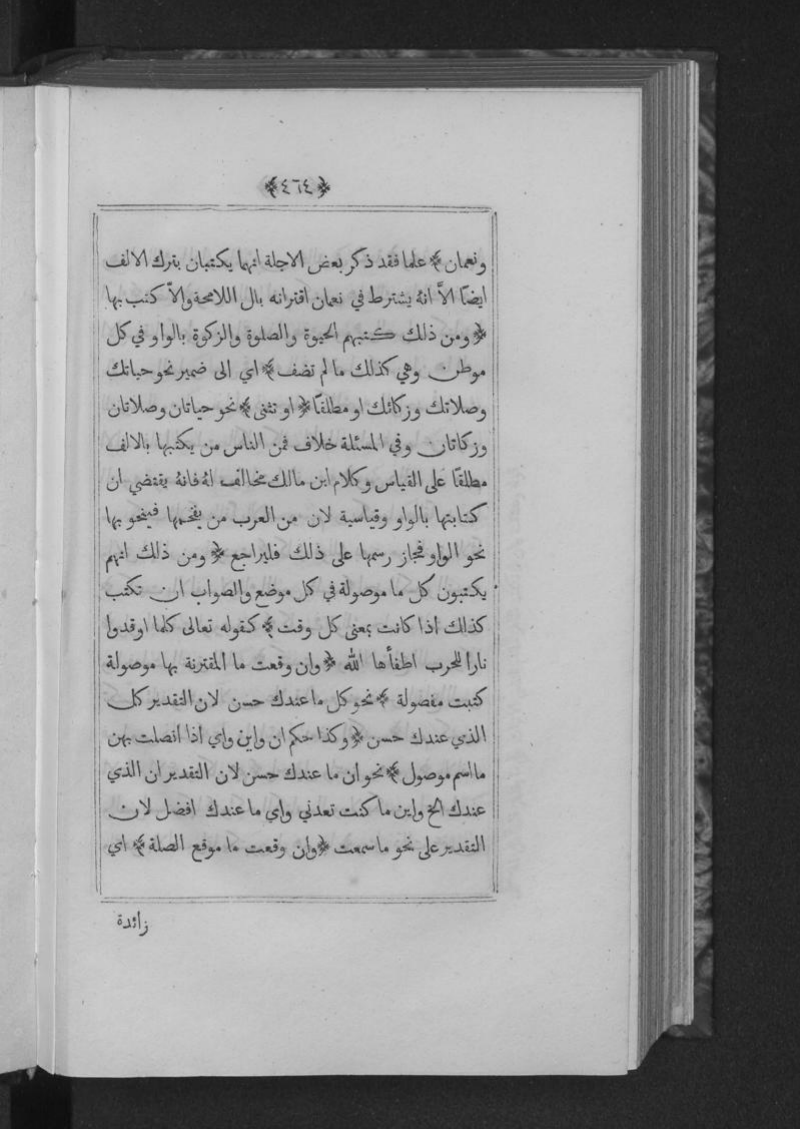 ﴿٤٦٤﴾
ونعمان ﴾ علما فقد ذكر بعض الاجلة انهما يكتبان بترك الالف
ايضًا الاَّ انهُ يشترط في نعمان اقترانه بال اللامحة والاَّ كتب بها
﴿ ومن ذلك كتبهم الحيوة والصلوة والزكوة بالواو في كل
موطن وهي كذلك ما لم تضف ﴾ اي الى ضمير نحو حياتك
وصلاتك وزكاتك او مطلقًا ﴿ او تثنى ﴾ نحو حياتان وصلاتان
وزكاتان وفي المسئلة خلاف فمن الناس من يكتبها بالالف
مطلقًا على القياس وكلام ابن مالك مخالف لهُ فانهُ يقتضي ان
كتابتها بالواو وقياسية لان من العرب من يفخمها فينحو بها
نحو الواو فجاز رسمها على ذلك فليراجع ﴿ ومن ذلك انهم
يكتبون كل ما موصولة في كل موضع والصواب ان تكتب
كذلك اذا كانت بمعنى كل وقت ﴾ كقوله تعالى كلما اوقدوا
نارا للحرب اطفأها الله ﴿ وان وقعت ما المقترنة بها موصولة
كتبت مفصولة ﴾ نحو كل ما عندك حسن لان التقدير كل
الذي عندك حسن ﴿ وكذا حكم ان واين واي اذا اتصلت بهن
ما اسم موصول ﴾ نحو ان ما عندك حسن لان التقدير ان الذي
عندك الخ واين ما كنت تعدني واي ما عندك افضل لان
التقدير على نحو ما سمعت ﴿ وان وقعت ما موقع الصلة ﴾ اي
زائدة